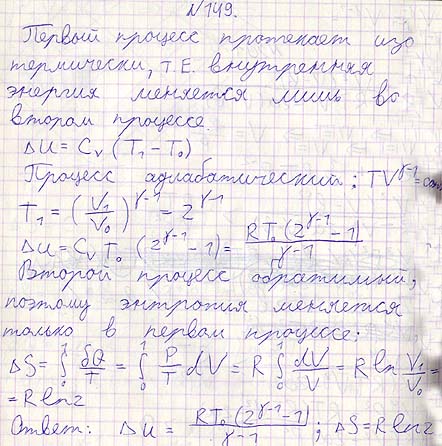 №149.
Первый процесс протекает изо
термически, т.е. внутренняя
энергия меняется лишь во
втором процессе.
ΔU = C_v (T₁ - T₀)
Процесс адиабатический; TV^(γ-1) = const
T₁ = (V₁/V₀)^(γ-1) = 2^(γ-1)
ΔU = C_v T₀ (2^(γ-1) - 1) = RT₀ (2^(γ-1) - 1)/(γ-1)
Второй процесс обратимый,
поэтому энтропия меняется
только в первом процессе:
ΔS = ∫₀¹ δQ/T = ∫₀¹ P/T dV = R ∫₀¹ dV/V = R ln V₁/V₀ =
= R ln 2
Ответ: ΔU = RT₀ (2^(γ-1) - 1)/(γ-1) ; ΔS = R ln 2